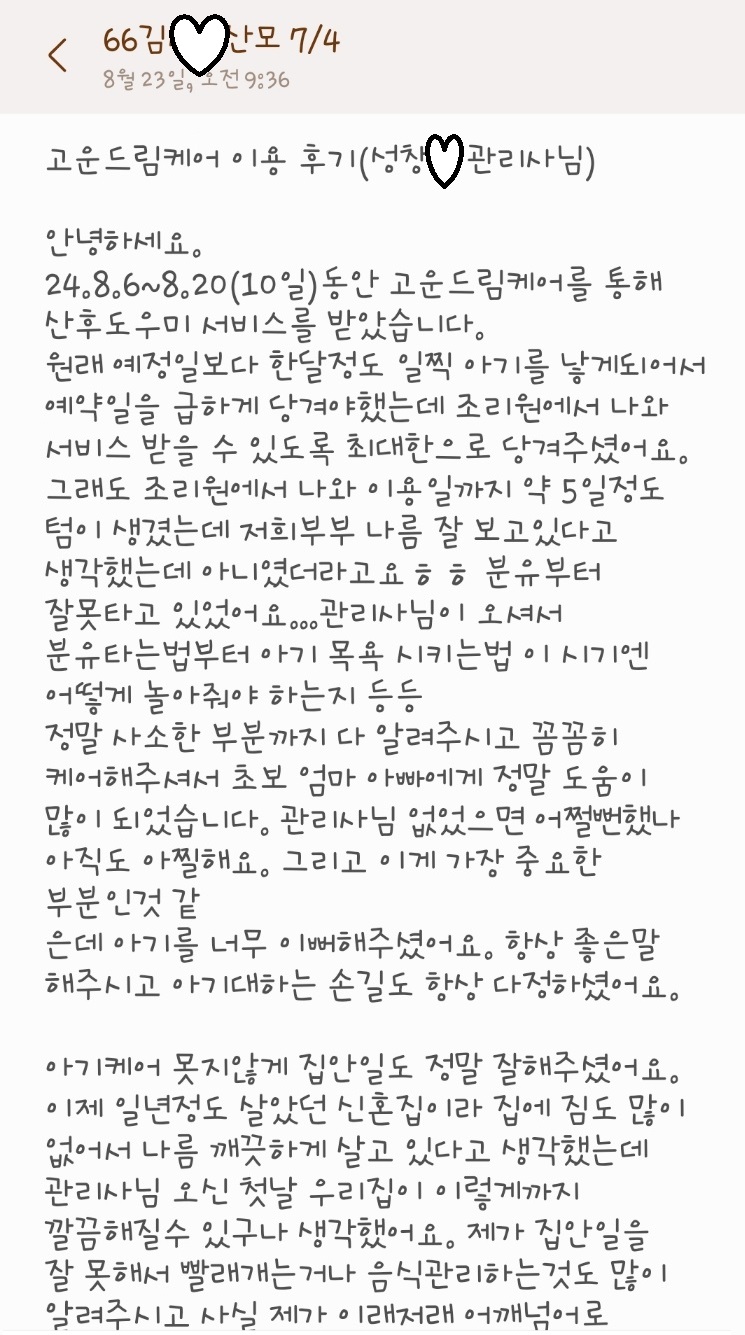 66김 산모 7/4
8월 23일, 오전 9:36
고운드림케어 이용 후기(성창 관리사님)
안녕하세요.
24.8.6~8.20(10일)동안 고운드림케어를 통해
산후도우미 서비스를 받았습니다.
원래 예정일보다 한달정도 일찍 아기를 낳게되어서
예약일을 급하게 당겨야했는데 조리원에서 나와
서비스 받을 수 있도록 최대한으로 당겨주셨어요.
그래도 조리원에서 나와 이용일까지 약 5일정도
텀이 생겼는데 저희부부 나름 잘 보고있다고
생각했는데 아니였더라고요ㅎㅎ 분유부터
잘못타고 있었어요...관리사님이 오셔서
분유타는법부터 아기 목욕 시키는법 이 시기엔
어떻게 놀아줘야 하는지 등등
정말 사소한 부분까지 다 알려주시고 꼼꼼히
케어해주셔서 초보 엄마 아빠에게 정말 도움이
많이 되었습니다. 관리사님 없었으면 어쩔뻔했나
아직도 아찔해요. 그리고 이게 가장 중요한
부분인것 같
은데 아기를 너무 이뻐해주셨어요. 항상 좋은말
해주시고 아기대하는 손길도 항상 다정하셨어요.
아기케어 못지않게 집안일도 정말 잘해주셨어요.
이제 일년정도 살았던 신혼집이라 집에 짐도 많이
없어서 나름 깨끗하게 살고 있다고 생각했는데
관리사님 오신 첫날 우리집이 이렇게까지
깔끔해질수 있구나 생각했어요. 제가 집안일을
잘 못해서 빨래개는거나 음식관리하는것도 많이
알려주시고 사실 제가 이래저래 어깨넘어로